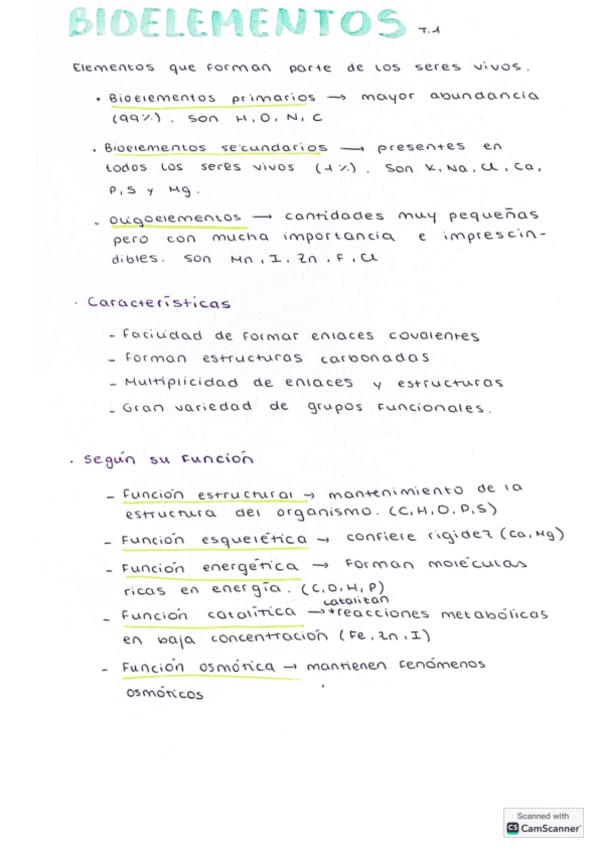 BIOELEMENTOS T.1
Elementos que forman parte de los seres vivos.
• Bioelementos primarios → mayor abundancia
(99%). Son H, O, N, C
• Bioelementos secundarios → presentes en
todos los seres vivos (1%). Son K, Na, Cl, Ca,
P, S y Mg.
- Oligoelementos → cantidades muy pequeñas
pero con mucha importancia e imprescin-
dibles. Son Mn, I, Zn, F, Cl
· Características
- Facilidad de formar enlaces covalentes
- Forman estructuras carbonadas
- Multiplicidad de enlaces y estructuras
- Gran variedad de grupos funcionales.
· Según su función
- Función estructural → mantenimiento de la
estructura del organismo. (C, H, O, P, S)
- Función esquelética → confiere rigidez (Ca, Mg)
- Función energética → Forman moléculas
ricas en energía. (C, O, H, P)
catalizan
- Función catalítica → reacciones metabólicas
en baja concentración (Fe, Zn, I)
- Función osmótica → mantienen fenómenos
osmóticos
Scanned with
CS CamScanner